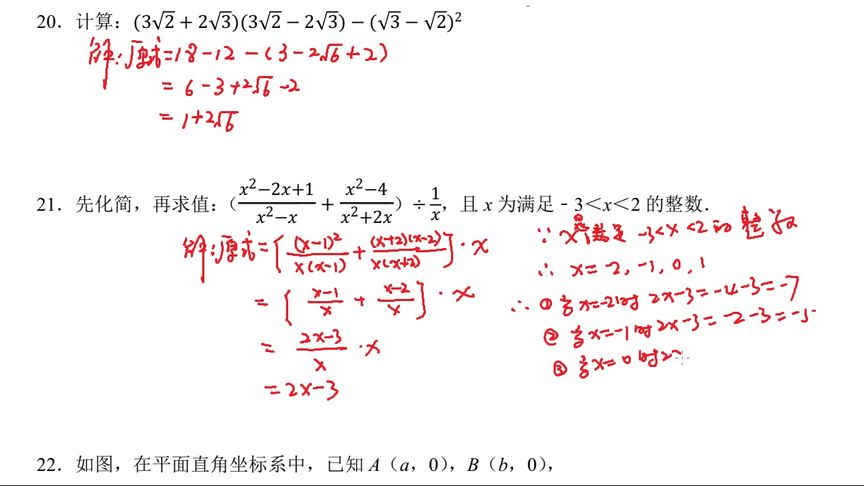 20．计算：(3√2 + 2√3)(3√2 − 2√3) − (√3 − √2)²
解：原式=18-12-(3-2√6+2)
= 6-3+2√6-2
= 1+2√6
21．先化简，再求值：（(x²−2x+1)/(x²−x) + (x²−4)/(x²+2x)）÷ 1/x，且 x 为满足﹣3＜x＜2 的整数．
解：原式=[(x-1)²/x(x-1) + (x+2)(x-2)/x(x+2)]·x
= [(x-1)/x + (x-2)/x]·x
= (2x-3)/x ·x
=2x-3
∵ x是满足 -3<x<2的整数
∴ x=-2,-1,0,1
∴ ①当x=-2时 2x-3=-4-3=-7
②当x=-1时2x-3=-2-3=-5
③当x=0时2
22．如图，在平面直角坐标系中，已知 A（a，0），B（b，0），